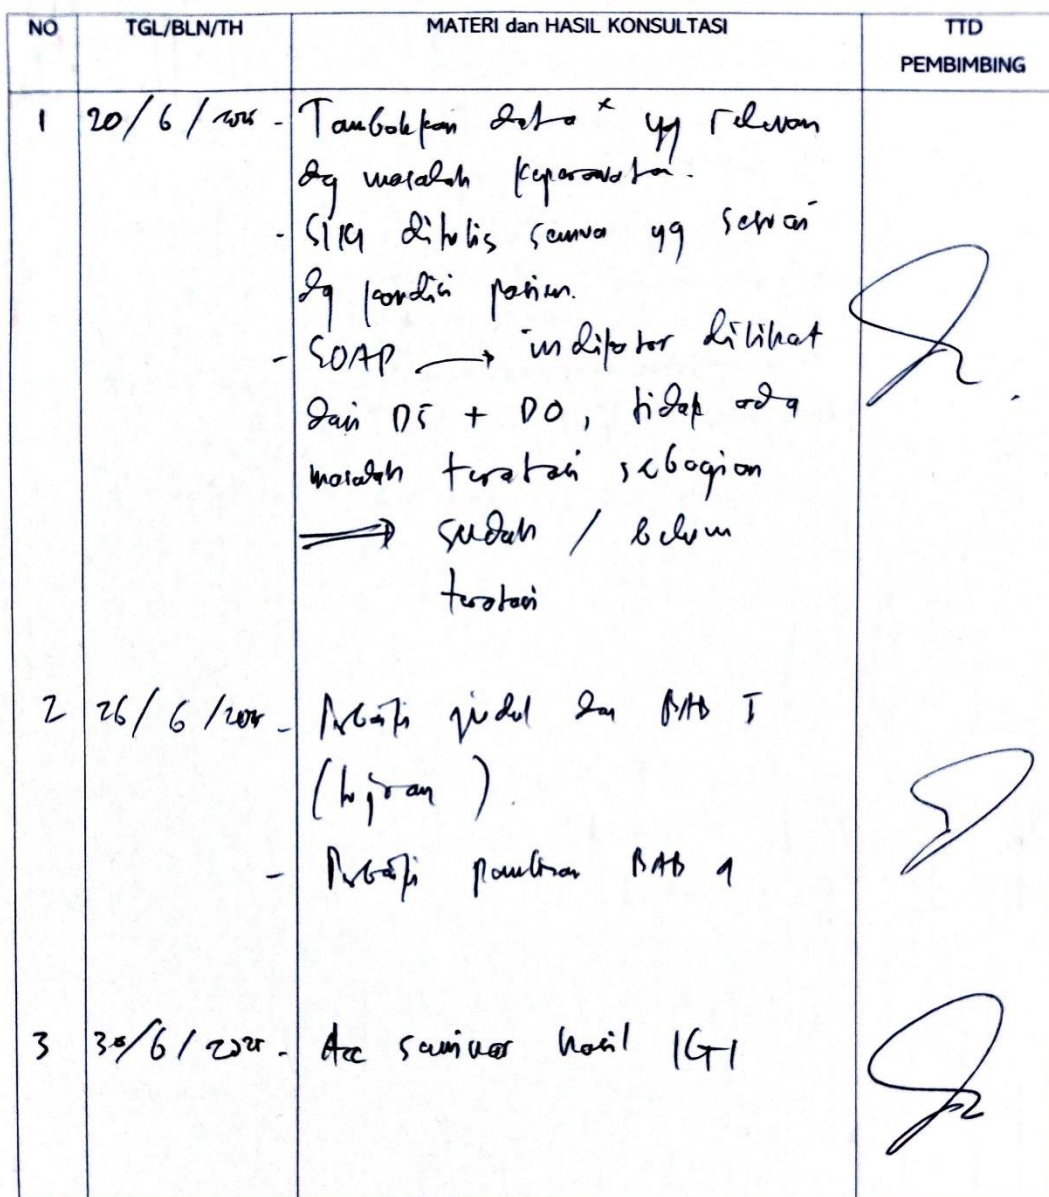 NO TGL/BLN/TH MATERI dan HASIL KONSULTASI TTD PEMBIMBING
1 20/6/2025 - Tambahkan data x yg relevan
dg masalah keperawatan.
- SIKI ditulis semua yg sesuai
dg kondisi pasien.
- SOAP → indikator dilihat
dari DS + DO, tidak ada
masalah teratasi sebagian
→ sudah / belum
teratasi
2 26/6/2025 - Perbaiki judul dan BAB I
(tujuan)
- Perbaiki penulisan BAB
3 30/6/2025 - Acc seminar hasil